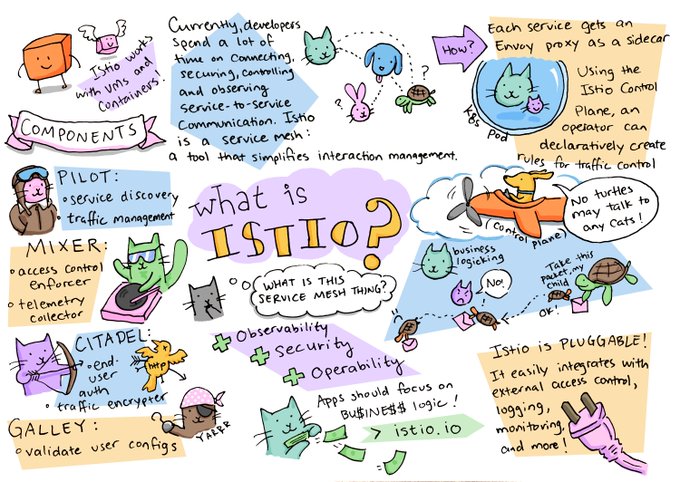 Istio works
with VMs and
Containers!
Currently, developers
Spend a lot of
time on connecting,
securing, controlling
and observing
Service-to-service
Communication. Istio
is a service mesh:
a tool that simplifies interaction management.
?
?
How?
Each service gets an
Envoy proxy as a sidecar
K8s pod
Using the
Istio Control
Plane, an
operator can
declaratively create
rules for traffic control
COMPONENTS
PILOT:
• service discovery
• traffic management
MIXER:
• access control
enforcer
• telemetry
collector
CITADEL:
• end-
user
auth
• traffic encrypter
http
GALLEY:
• validate user configs
YARRR
What is
ISTIO?
WHAT IS THIS
SERVICE MESH THING?
+ Observability
+ Security
+ Operability
Apps should focus on
BU$INE$$ logic!
> istio.io
(control plane)
NO turtles
may talk to
any Cats!
business
logicking
NO!
Take this
packet, my
child
OK!
Istio is PLUGGABLE!
It easily integrates with
external access control,
logging,
monitoring,
and more!